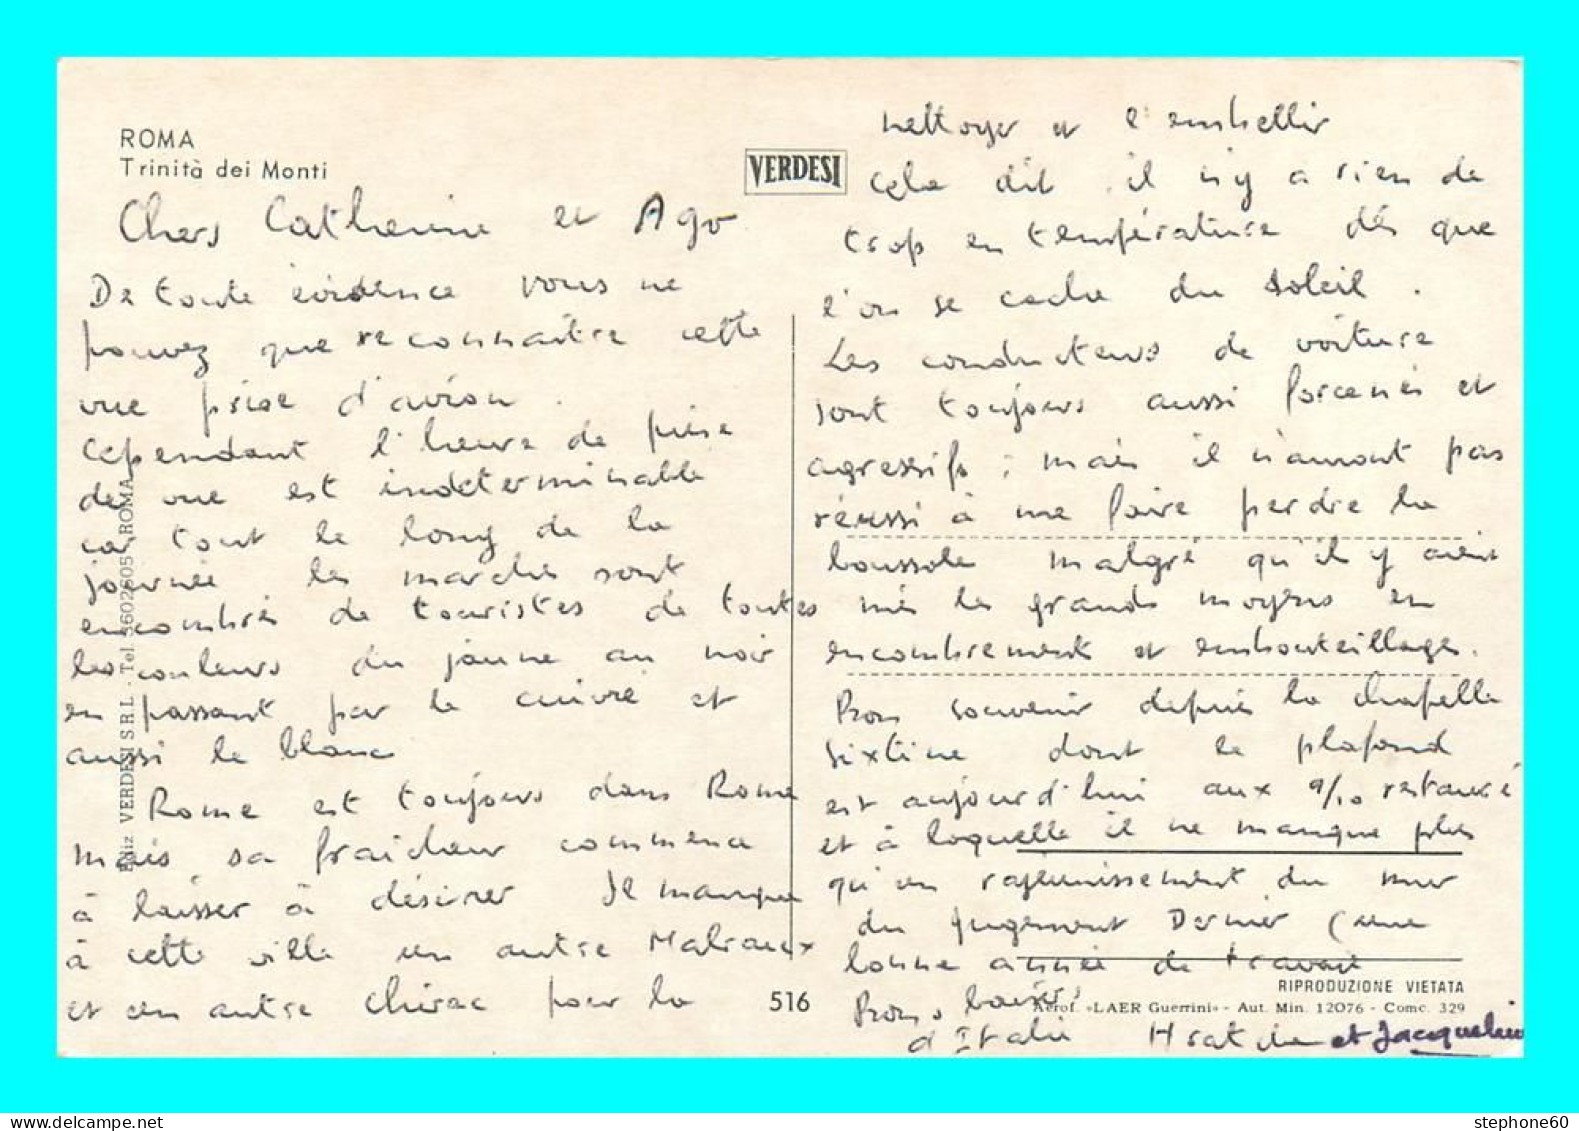 ROMA
Trinità dei Monti
VERDESI
Chers Catherine et Ago
De toute évidence vous ne
pouvez que reconnaître cette
vue prise d'avion.
Cependant l'heure de prise
de vue est indéterminable
car tout le long de la
journée les marches sont
encombrées de touristes de toutes
les couleurs du jaune au noir
en passant par le cuivré et
aussi le blanc
Rome est toujours dans Rome
mais sa fraîcheur commence
à laisser à désirer Il manque
à cette ville un autre Malraux
et un autre Chirac pour la
nettoyer et l'embellir
Cela dit il n'y a rien de
trop en température dès que
l'on se cache du soleil.
Les conducteurs de voiture
sont toujours aussi forcenés et
agressifs ; mais il n'auront pas
réussi à me faire perdre la
boussole malgré qu'il y aient
mis les grands moyens en
encombrement et embouteillages.
Bon souvenir depuis la chapelle
Sixtine dont le plafond
est aujourd'hui aux 9/10 restauré
et à laquelle il ne manque plus
qu'un rajeunissement du mur
du Jugement Dernier (une
bonne année de travail
Bons baisers
d'Italie
et Jacqueline
Ediz VERDESI S.R.L. - Tel. 5602605 - ROMA
516
RIPRODUZIONE VIETATA
Aerof. «LAER Guerrini» - Aut. Min. 12076 - Comc. 329
stephone60